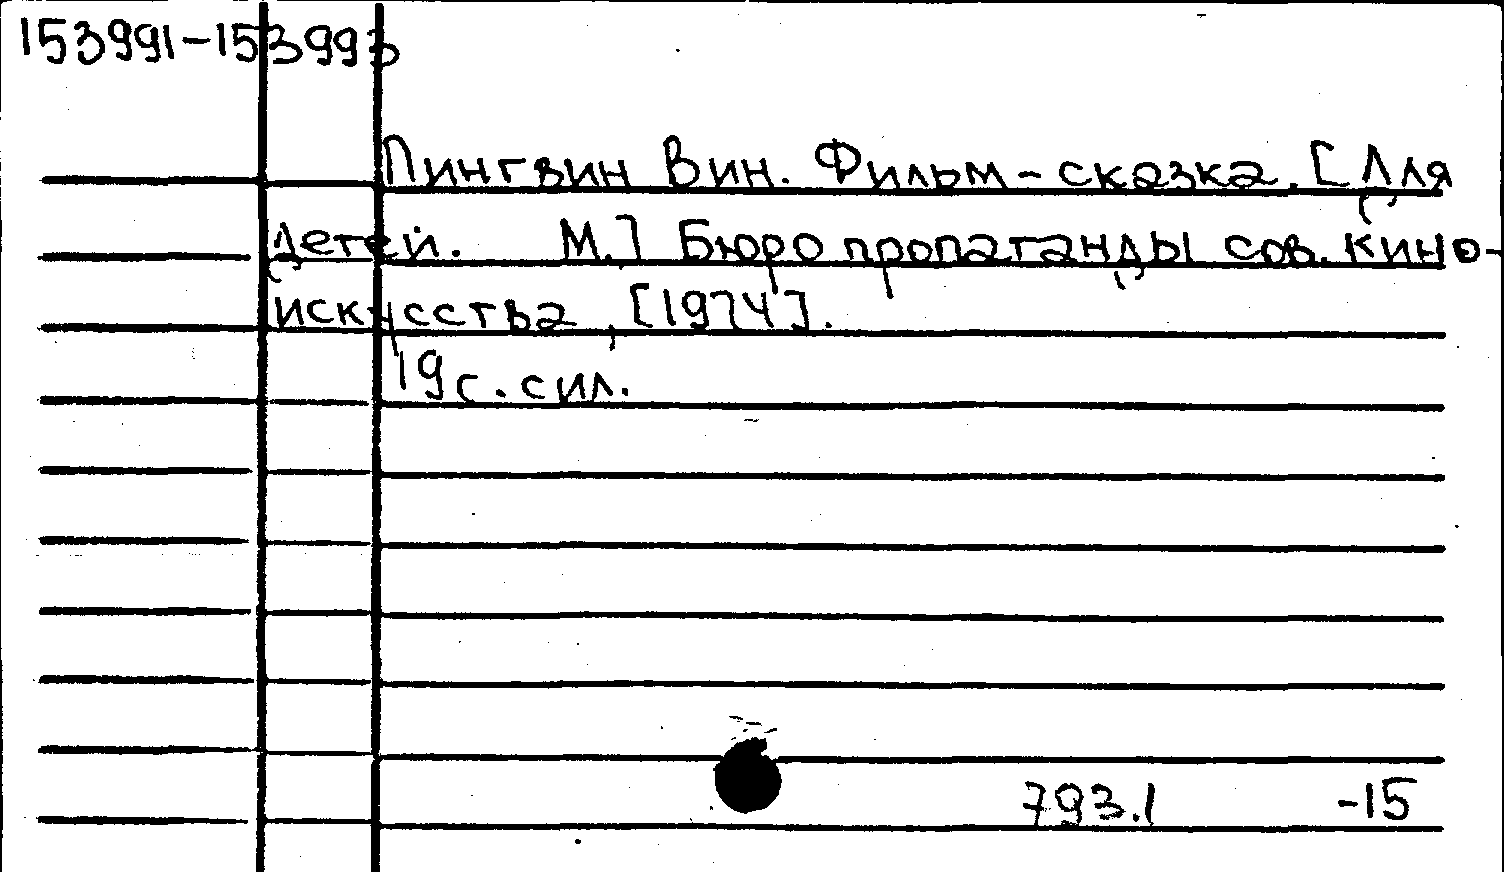 153991-153993
Пингвин Вин. Фильм-сказка. [Для
детей. М.] Бюро пропаганды сов. кино-
искусства, [1974].
19 с. с ил.
793.1 -15